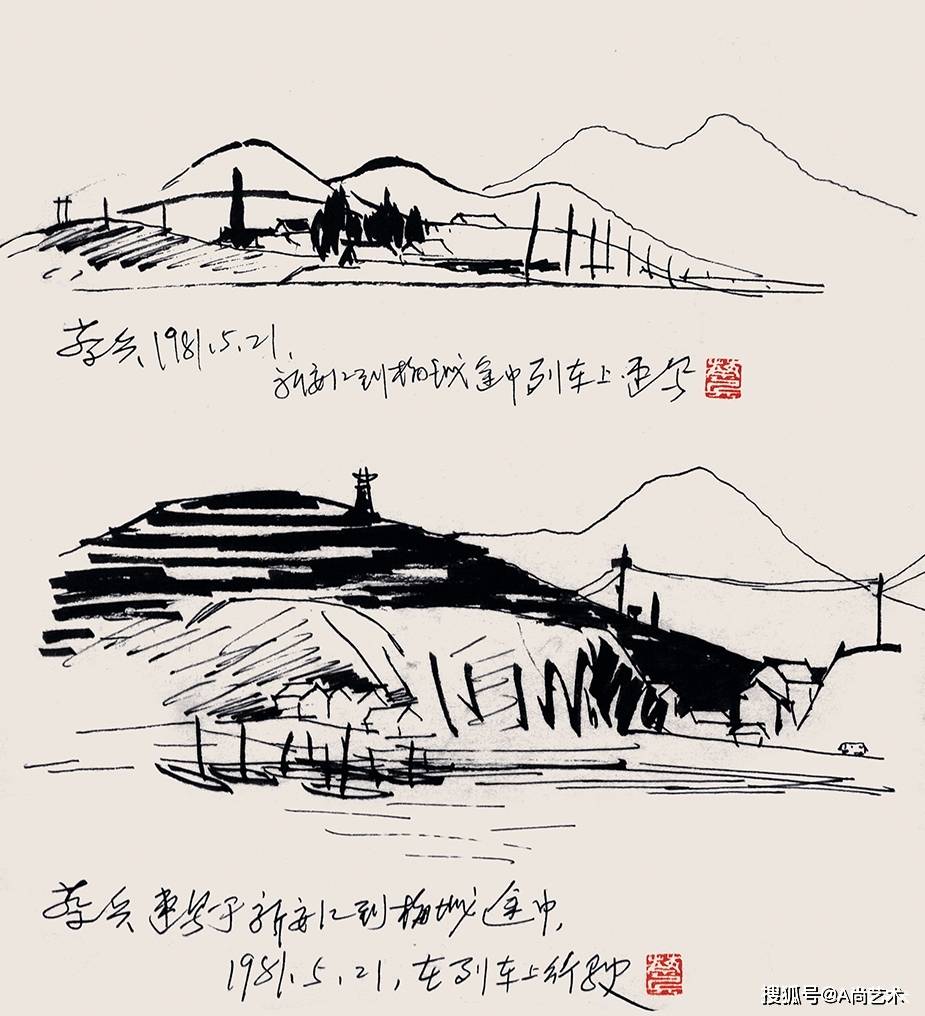 蔡兵1981.5.21.
新安江到梅城途中列车上速写
蔡兵速写于新安江到梅城途中,
1981.5.21,在列车上行驶
搜狐号@A尚艺术